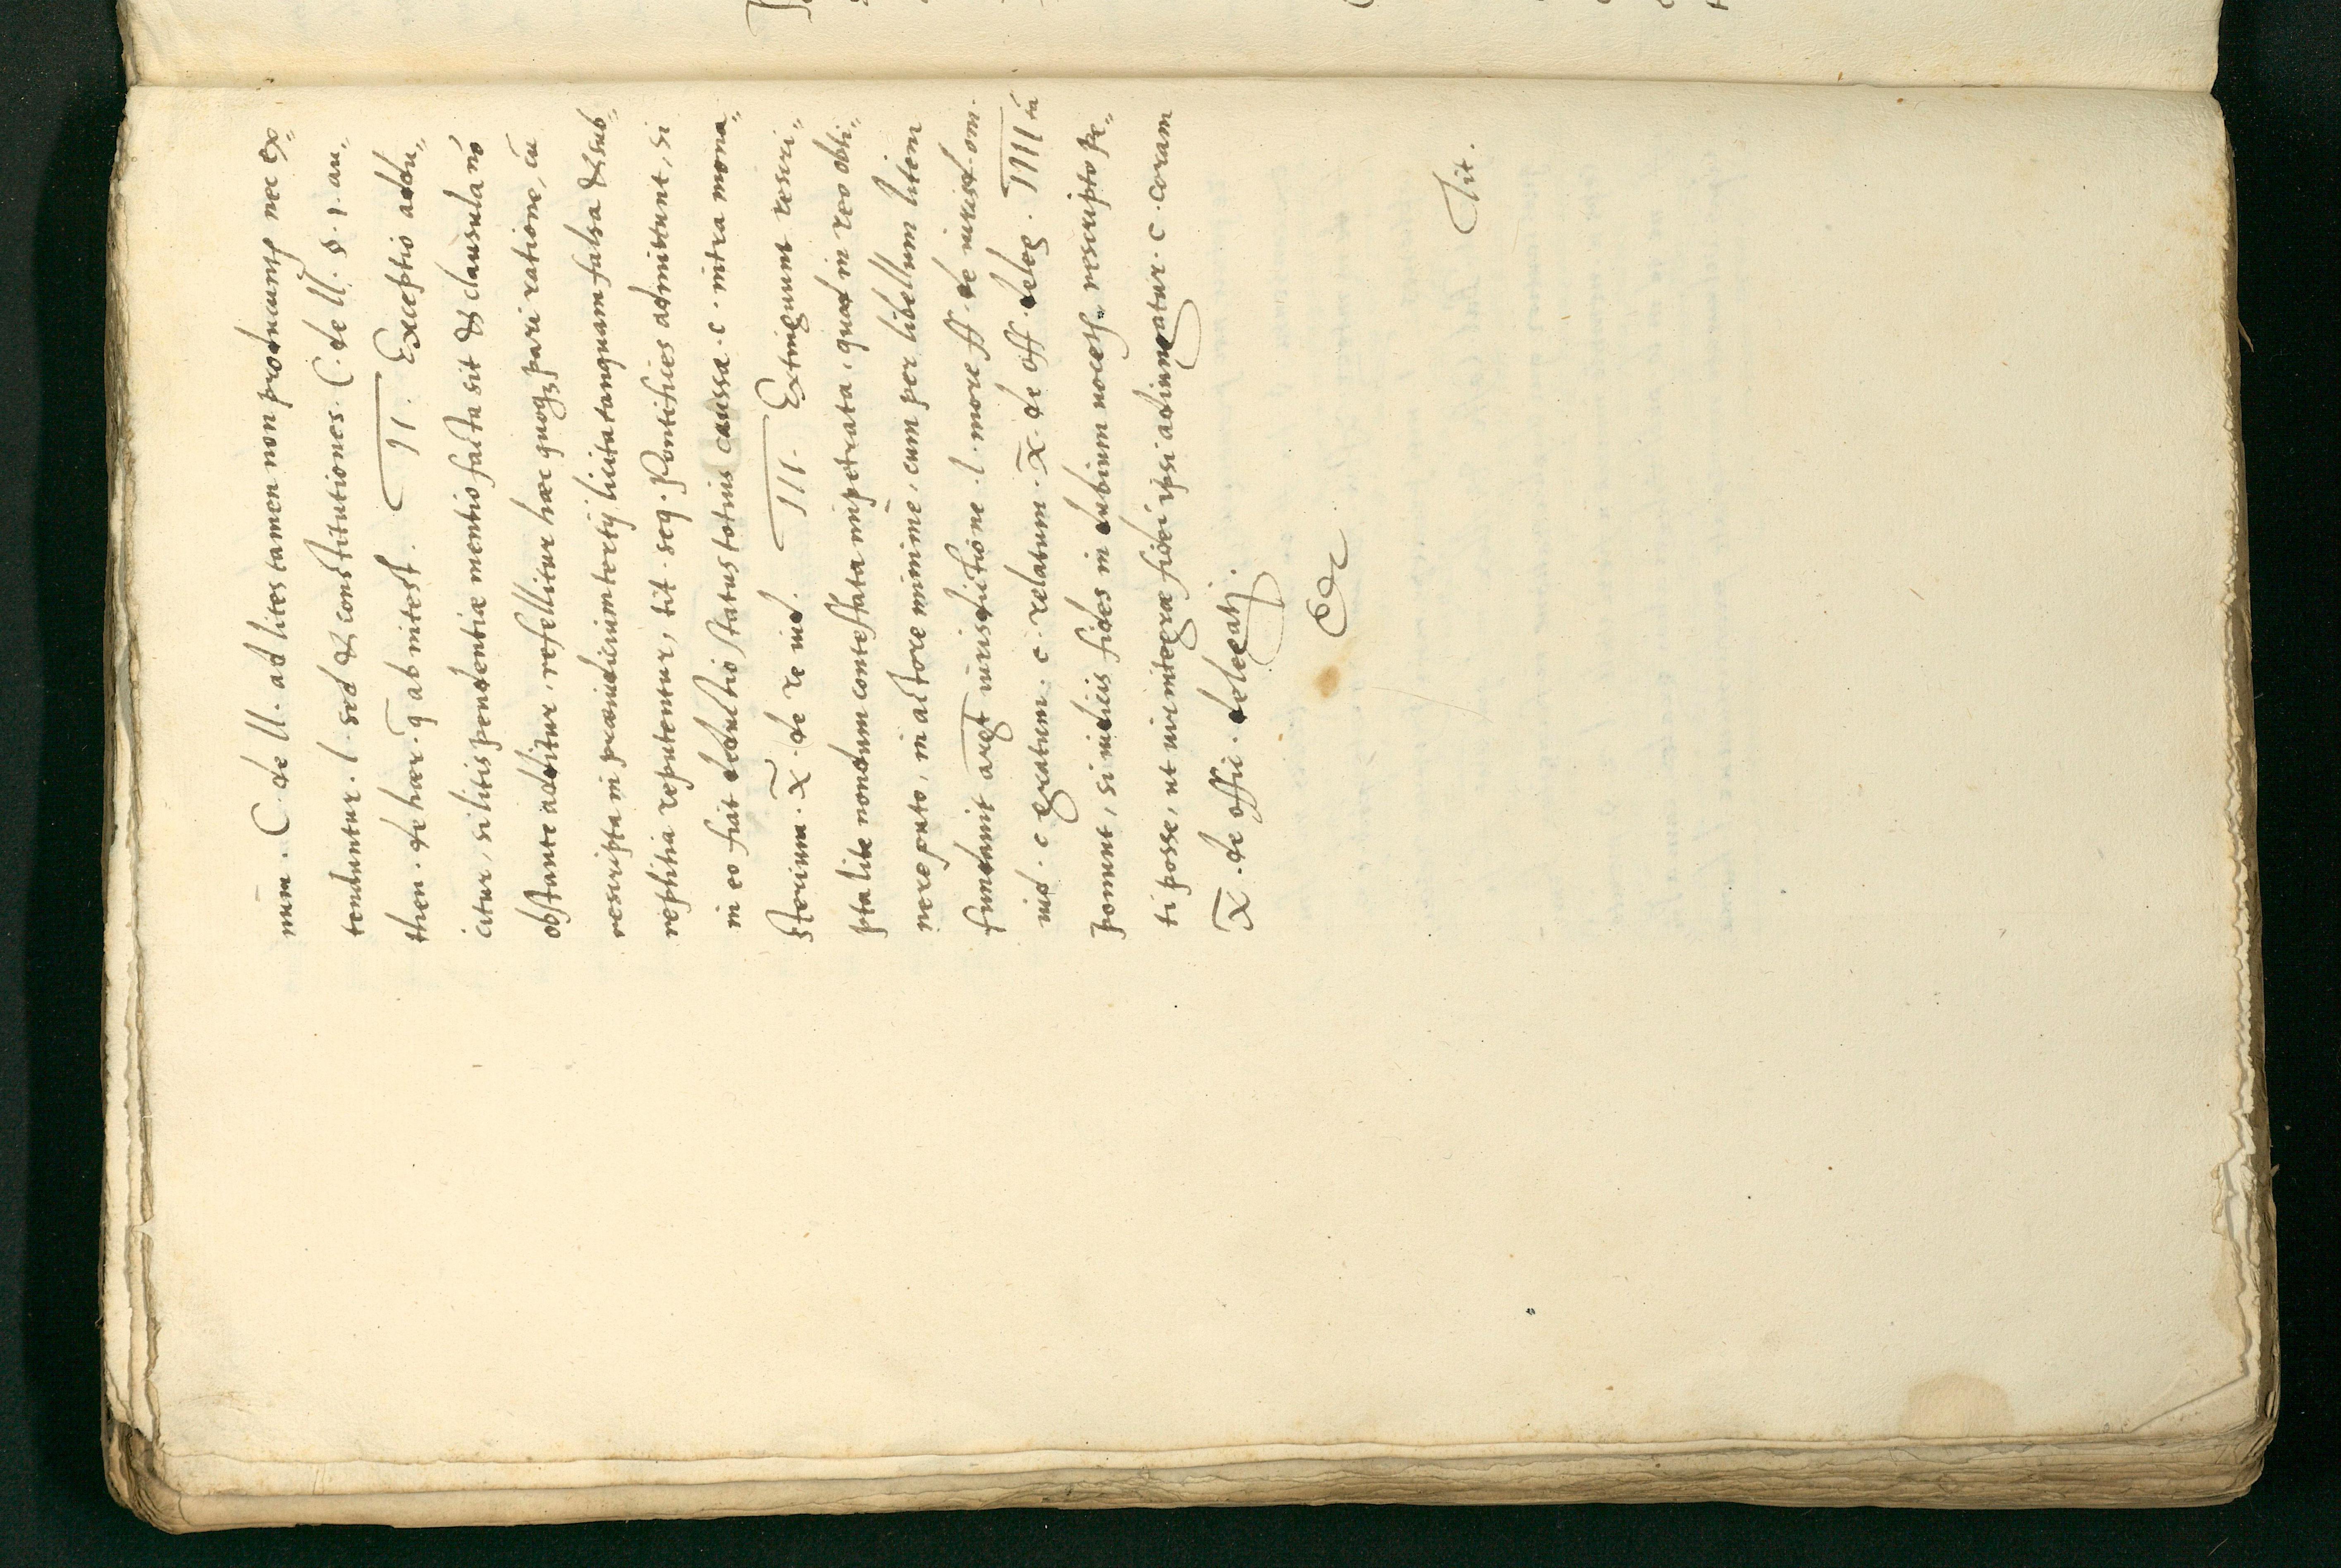 mum. C. de ll. ad lites tamen non producunꝶ nec ex„
tenduntur. l. sed & constitutiones. C. de ll. §. 1. au„
then. de hær. q̄ ab intest. II. Exceptio addu„
citur, si litis pendentiæ mentio facta sit & clausula nō
obstante additur. refellitur hæc quoqꝫ pari ratione, cū
rescripta in præiudicium tertij licita tanquam falsa & sub„
reptitia reputentur, tit. seq. Pontifices admittunt, si
in eo fiat deductio status totius caussa. c. intra mona„
sterium. x̄. de re iud. III. Extinguunt rescri„
pta lite nondum contestata impetrata, quod in reo obti„
nere puto, in actore minime, cum per libellum litem
fundauit argt iurisdictione. l. more ff. de iurisd. om.
iud. c. gratum. c. relatum. x̄. de off. deleg. IIII ta
ponunt, si iudicis fides in dubium uocetꝶ, rescripto pe„
ti posse, ut uir integræ fidei ipsi adiungatur. c. coram
x̄. de offic. delegatj.
&c
Tit.